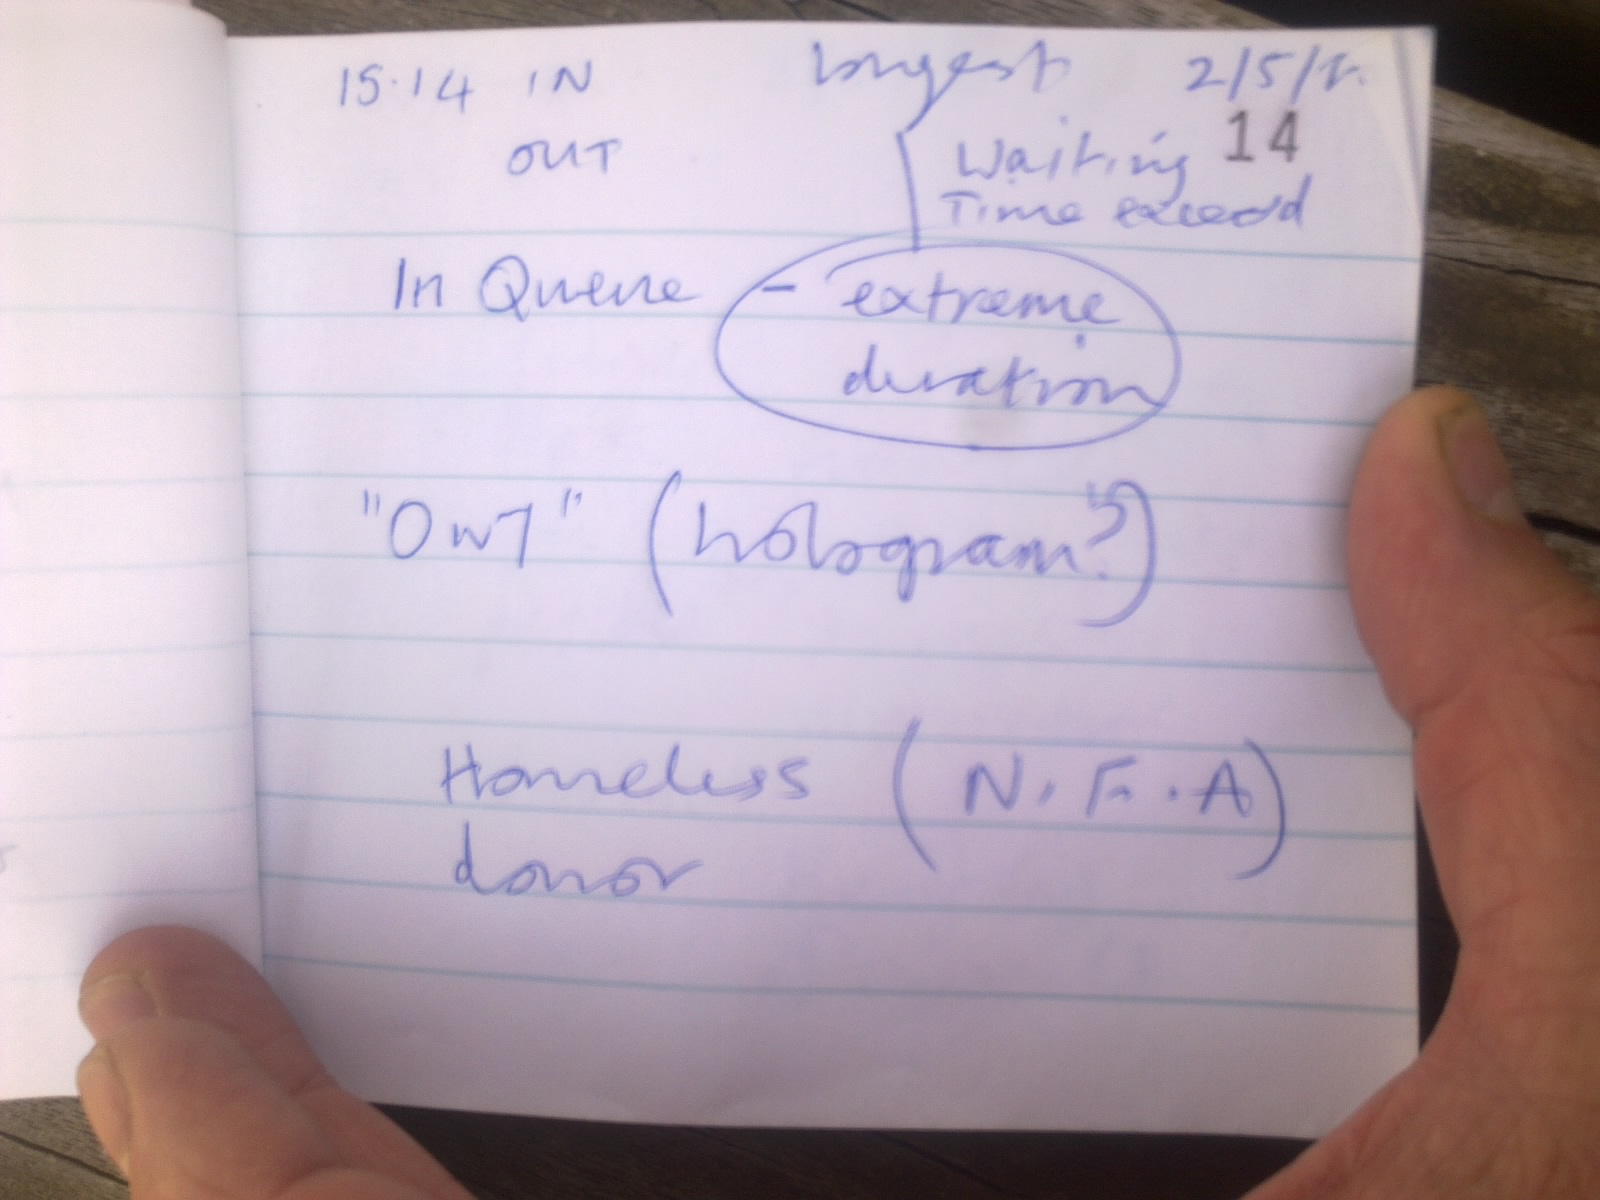 15.14 IN longest 2/5/12
OUT Waiting 14
Time exceed
In Queue - extreme
duration
"OWT" (hologram?)
Homeless (N.F.A)
donor